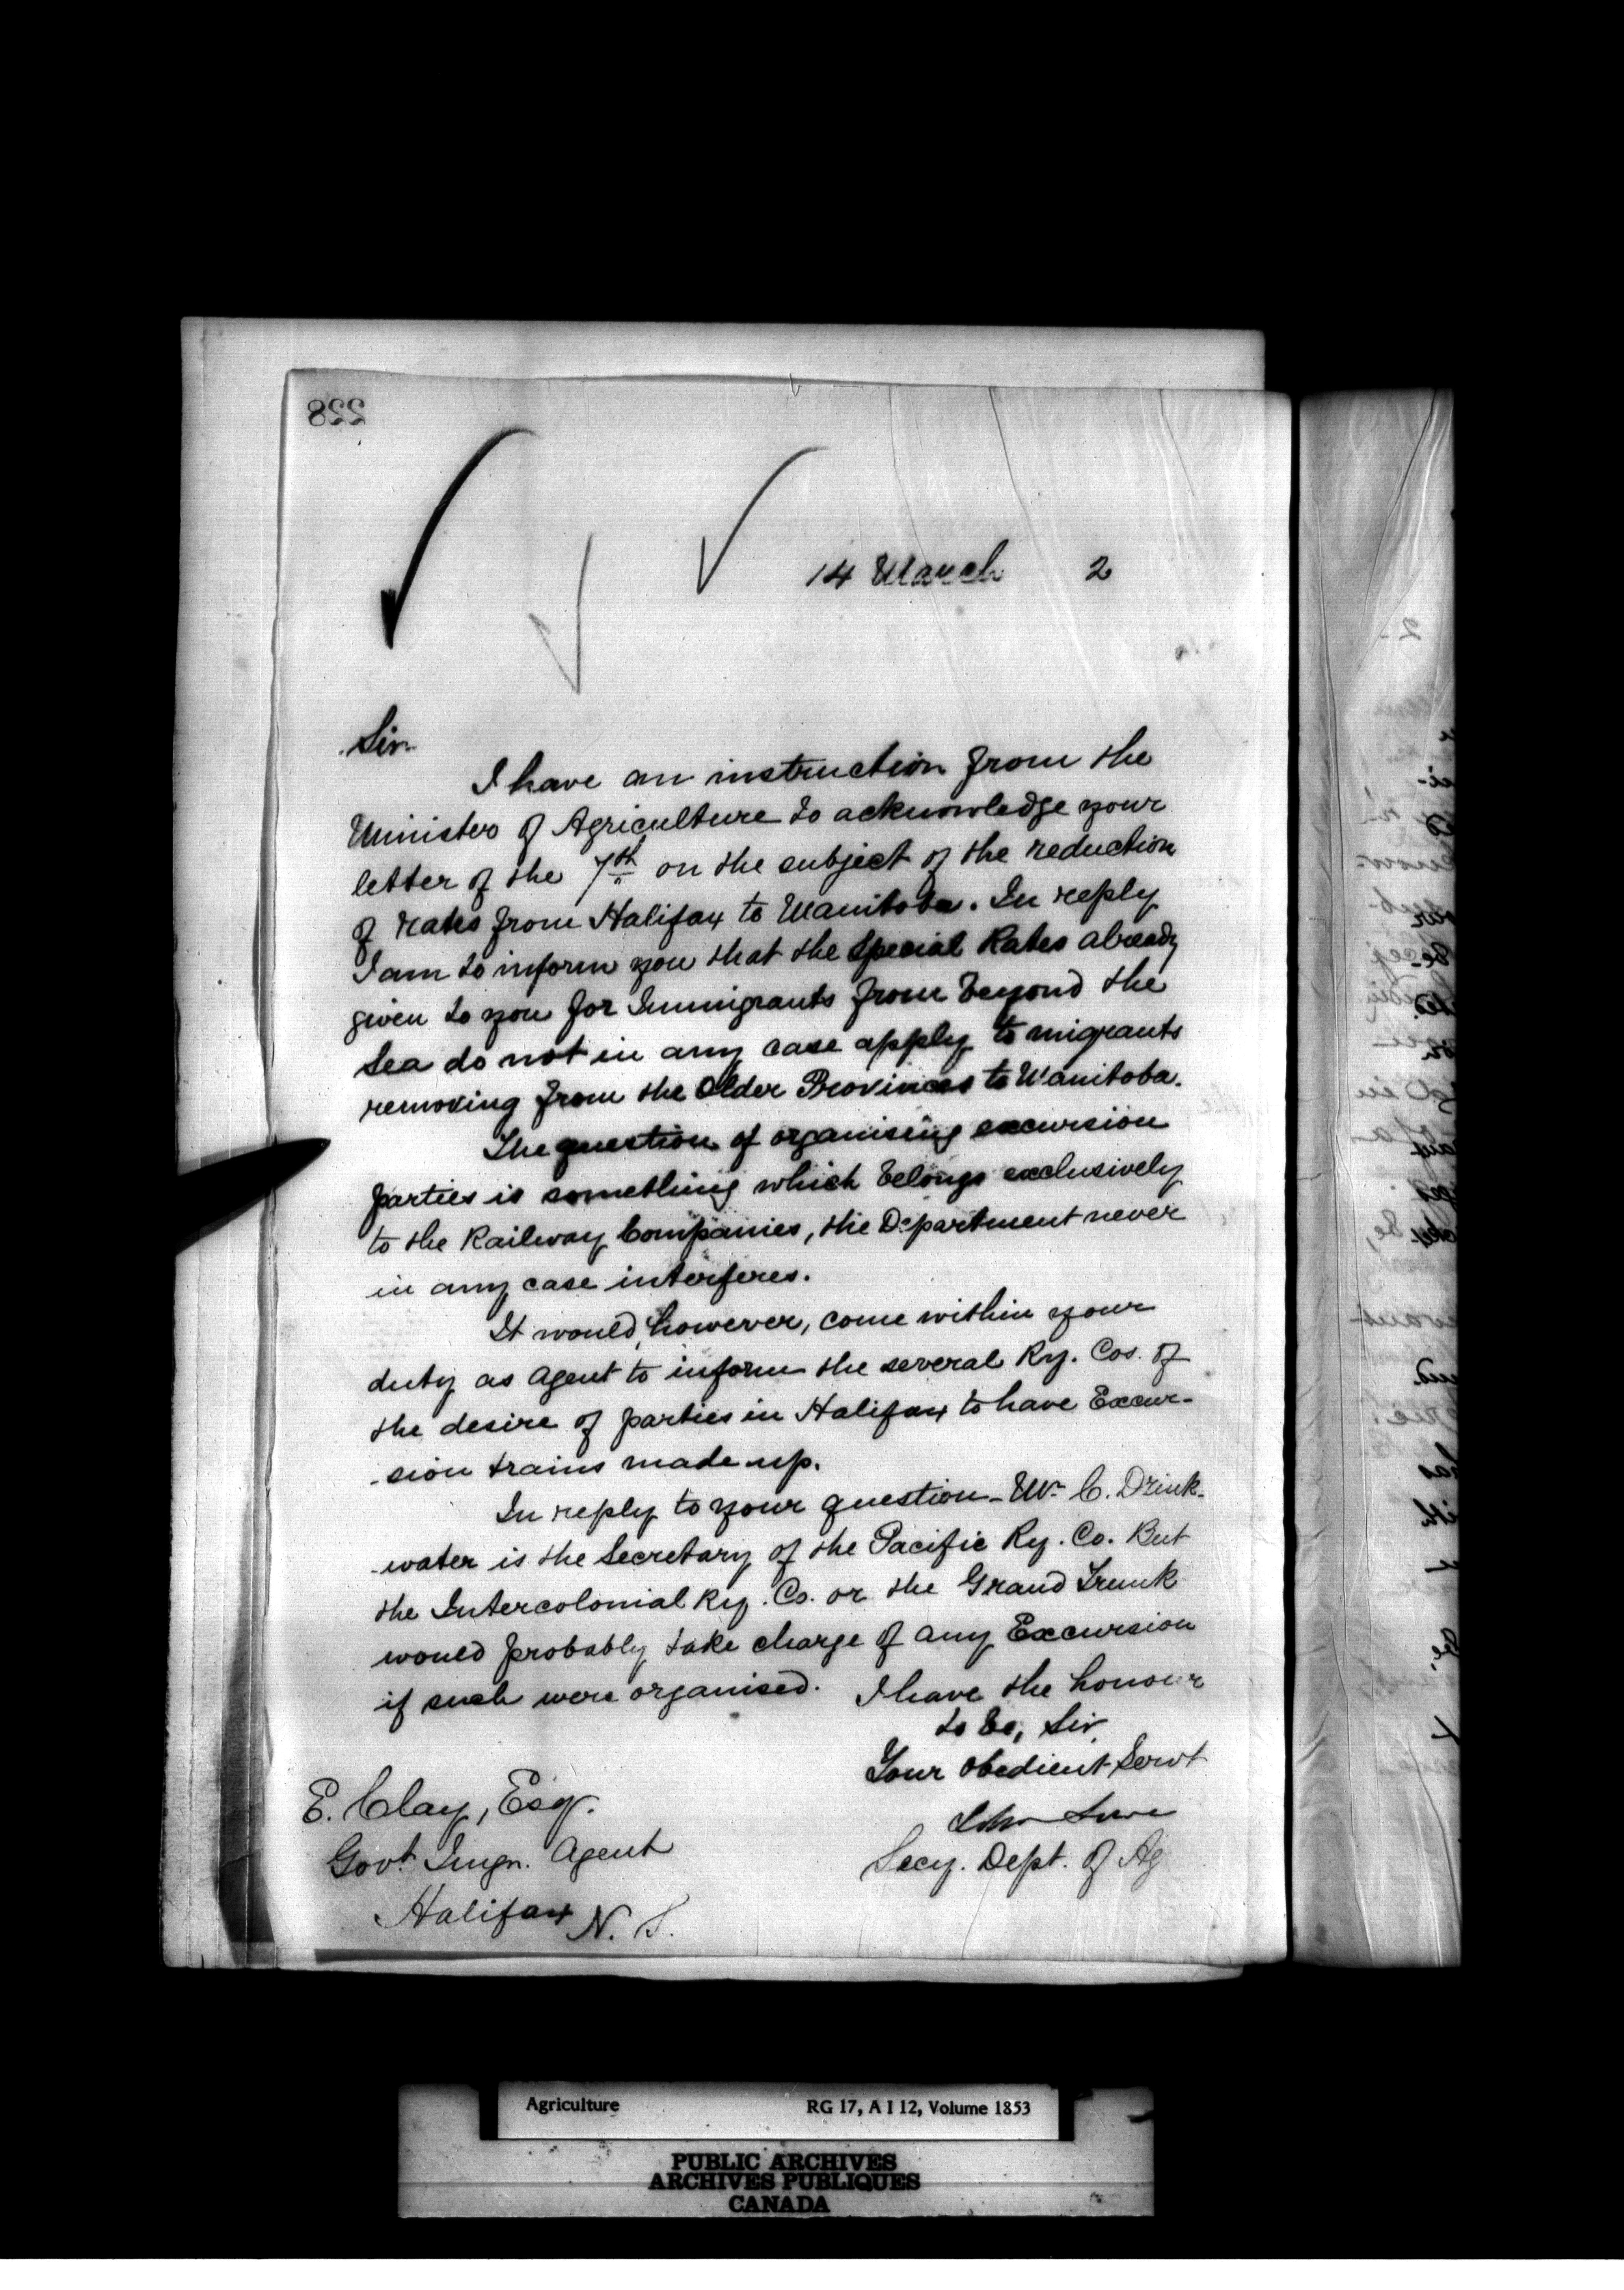 228
14 March 2
Sir
I have an instruction from the
Minister of Agriculture to acknowledge your
letter of the 7th on the subject of the reduction
of rates from Halifax to Manitoba. In reply
I am to inform you that the Special Rates already
given to you for Immigrants from beyond the
Sea do not in any case apply to migrants
removing from the Older Provinces to Manitoba.
The question of organising excursion
parties is something which belongs exclusively
to the Railway Companies, the Department never
in any case interferes.
It would, however, come within your
duty as Agent to inform the several Ry. Cos. of
the desire of parties in Halifax to have Excur-
-sion trains made up.
In reply to your question - Mr C. Drink-
-water is the Secretary of the Pacific Ry. Co. But
the Intercolonial Ry. Co. or the Grand Trunk
would probably take charge of any Excursion
if such were organised.
I have the honour
to be, Sir,
Your Obedient Servt
John Lowe
Secy. Dept. of Ag
E. Clay, Esq.
Govt. Imgn. Agent
Halifax N. S.
Agriculture RG 17, A I 12, Volume 1853
PUBLIC ARCHIVES
ARCHIVES PUBLIQUES
CANADA